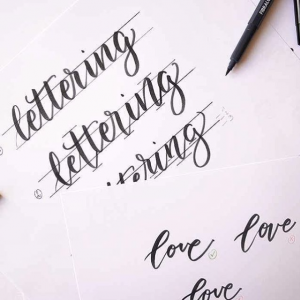 lettering
lettering
love love
love